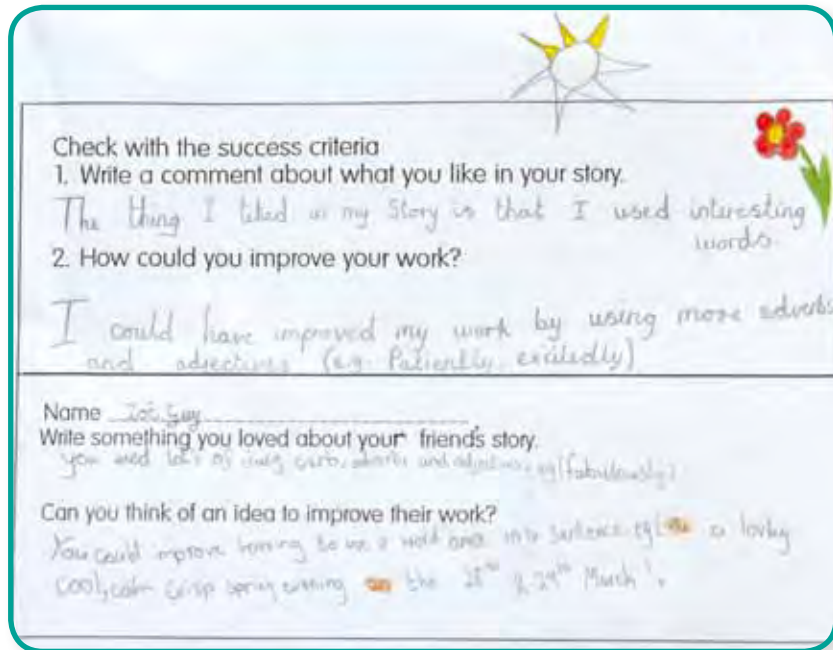 Check with the success criteria
1. Write a comment about what you like in your story.
The thing I liked in my Story is that I used interesting
words.
2. How could you improve your work?
I could have improved my work by using more adverbs
and adjectives (e.g. Patiently, exitedly)
Name
Write something you loved about your friend's story.
you used lot's of verb, adverbs and adjectives eg (fabulously)
Can you think of an idea to improve their work?
You could improve to use a word once into sentence eg a lovley
cool, calm crisp spring evening on the 28th & 29th March